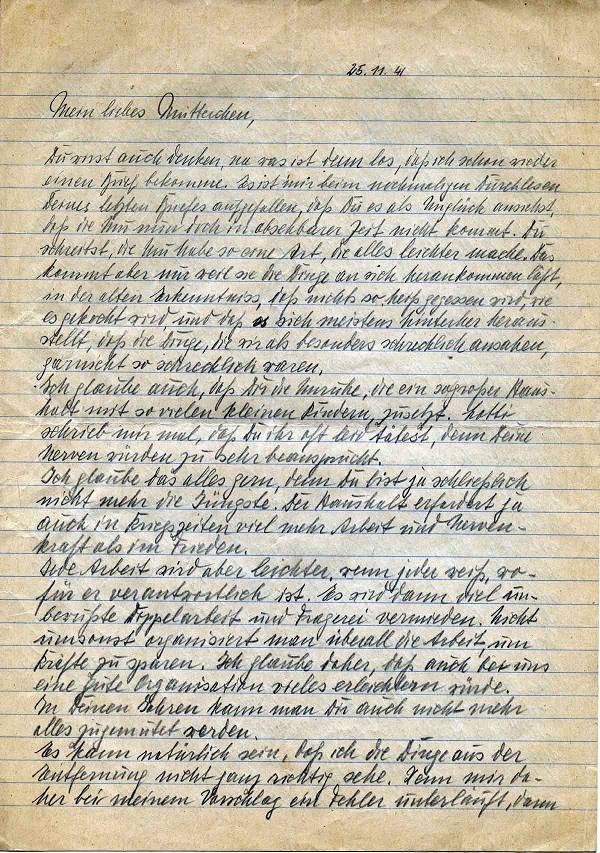 25.11.41
Mein liebes Mütterchen,
Du wirst auch denken, na was ist denn los, daß ich schon wieder
einen Brief bekomme. Es ist mir beim nochmaligen Durchlesen
Deines letzten Briefes aufgefallen, daß Du es als Unglück ansiehst,
daß die Mu nun doch in absehbarer Zeit nicht kommt. Du
schreibst, die Mu habe so eine Art, die alles leichter mache. Das
kommt aber nur weil sie die Dinge an sich herankommen läßt,
in der alten Erkenntniss, daß nichts so heiß gegessen wird, wie
es gekocht wird, und daß es sich meistens hinterher heraus-
stellt, daß die Dinge, die wir als besonders schrecklich ansahen,
garnicht so schrecklich waren.
Ich glaube auch, daß Dir die Unruhe, die ein so großer Haus-
halt mit so vielen kleinen Kindern, zusetzt. Lotti
schrieb mir mal, daß Du ihr oft leid tätest, denn Deine
Nerven würden zu sehr beansprucht.
Ich glaube das alles gern, denn Du bist ja schließlich
nicht mehr die Jüngste. Der Haushalt erfordert ja
auch in Kriegszeiten viel mehr Arbeit und Nerven-
kraft als im Frieden.
Jede Arbeit wird aber leichter, wenn jeder weiß, wo-
für er verantwortlich ist. Es wird dann viel un-
bewußte Doppelarbeit und Fragerei vermieden. Nicht
umsonst organisiert man überall die Arbeit, um
Kräfte zu sparen. Ich glaube daher, daß auch bei uns
eine gute Organisation vieles erleichtern würde.
In Deinen Jahren kann man Dir auch nicht mehr
alles zugemutet werden.
Es kann natürlich sein, daß ich die Dinge aus der
Entfernung nicht ganz richtig sehe. Wenn mir da-
her bei meinem Vorschlag ein Fehler unterläuft, dann